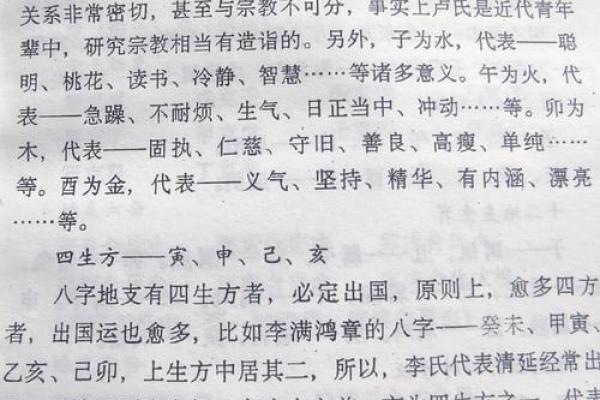 关系非常密切，甚至与宗教不可分，事实上卢氏是近代青年
辈中，研究宗教相当有造诣的。另外，子为水，代表——聪
明、桃花、读书、冷静、智慧……等诸多意义。午为火，代
表——急躁、不耐烦、生气、日正当中、冲动……等。卯为
木，代表——固执、仁慈、守旧、善良、高瘦、单纯……
等。酉为金，代表——义气、坚持、精华、有内涵、漂亮
……等。
四生方——寅、申、己、亥
八字地支有四生方者，必定出国，原则上，愈多四方
者，出国运也愈多，比如李满鸿章的八字——癸未、甲寅、
乙亥、己卯，上生方中居其二，所以，李氏代表清延经常出